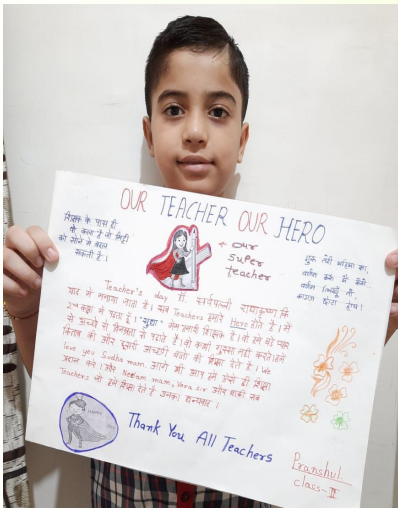 OUR TEACHER OUR HERO
शिक्षक के पास ही
वो कला है जो मिट्टी
को सोने में बदल
सकती है।
* our
super
teacher
गुरु तेरी महिमा का,
वर्णन करूं मैं कैसे
वर्णन लिखूँ तो,
कागज छोटा होय।
Teacher's day डॉ. सर्वपल्ली राधाकृष्णन कि
याद में मनाया जाता है। सब Teachers हमारे Hero होते हैं। मैं
2nd कक्षा में पढ़ता हूँ। "सुधा" मैम हमारी शिक्षिक है। वो हमें बड़े प्यार
से अच्छे से विनम्रता से पढ़ाते है। वो कभी गुस्सा नहीं करते। हमें
किताब की और दूसरी अच्छी बातों की शिक्षा देते है। We
love you Sudha mam. आगे भी आप हमें ऐसे ही शिक्षा
प्रदान करे। और Neelam mam, Vara sir और बाकी सब
Teachers जो हमें शिक्षा देते हैं उनका धन्यवाद।
Thank You All Teachers
Pranshul
class-II